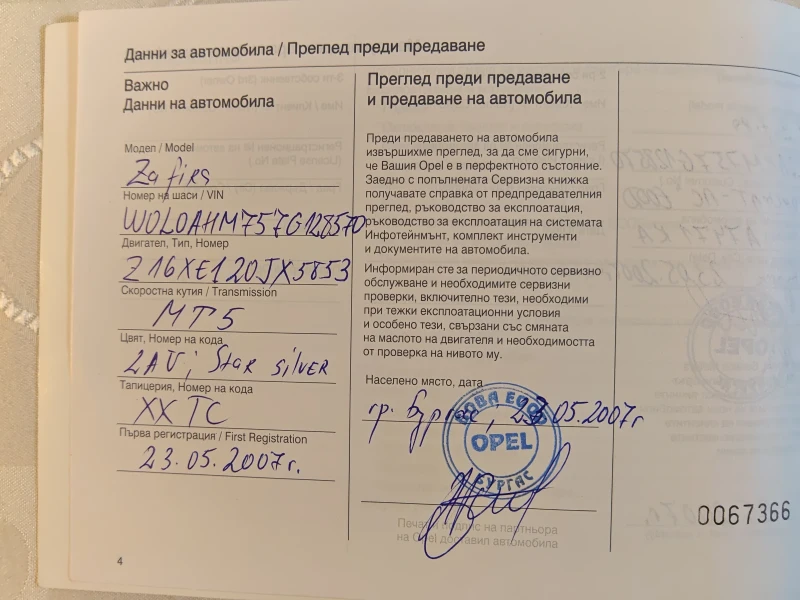 Данни за автомобила / Преглед преди предаване
Важно
Данни на автомобила
Модел / Model
Zafira
Номер на шаси / VIN
W0L0AHM757G128570
Двигател, Тип, Номер
Z16XE1 20JX5853
Скоростна кутия / Transmission
MT5
Цвят, Номер на кода
2AU; Star silver
Тапицерия, Номер на кода
XXTC
Първа регистрация / First Registration
23.05.2007г.
4
Преглед преди предаване
и предаване на автомобила
Преди предаването на автомобила
извършихме преглед, за да сме сигурни,
че Вашия Opel е в перфектното състояние.
Заедно с попълнената Сервизна книжка
получавате справка от предпредавателния
преглед, ръководство за експлоатация,
ръководство за експлоатация на системата
Инфотейнмънт, комплект инструменти
и документите на автомобила.
Информиран сте за периодичното сервизно
обслужване и необходимите сервизни
проверки, включително тези, необходими
при тежки експлоатационни условия
и особено тези, свързани със смяната
на маслото на двигателя и необходимостта
от проверка на нивото му.
Населено място, дата
гр. Бургас, 23.05.2007г
ЕООД
OPEL
БУРГАС
Печат и подпис на партньора
на Opel доставил автомобила
0067366